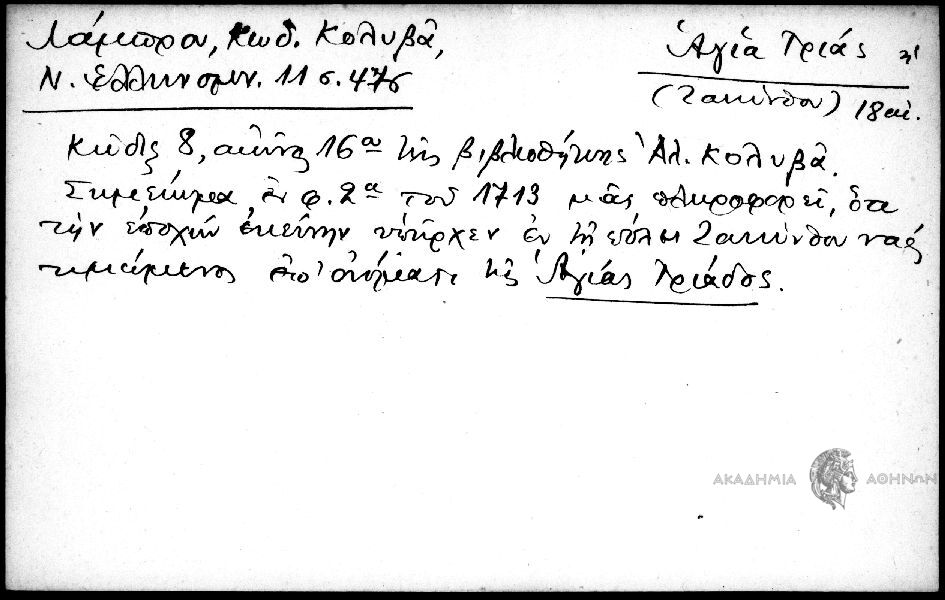 Λάμπρου, Κώδ. Κολυβᾶ,
Ν. Ἑλληνομν. 11 σ. 476
Ἁγία Τριάς
(Ζακύνθου) 18 αἰ.
Κῶδιξ 8, αἰῶνος 16ου τῆς βιβλιοθήκης Ἀλ. Κολυβᾶ.
Σημείωμα ἐν φ. 2α τοῦ 1713 μᾶς πληροφορεῖ, ὅτι
τὴν ἐποχὴν ἐκείνην ὑπῆρχεν ἐν τῇ πόλει Ζακύνθου ναός
τιμώμενος ἐπ' ὀνόματι τῆς Ἁγίας Τριάδος.
ΑΚΑΔΗΜΙΑ ΑΘΗΝΩΝ